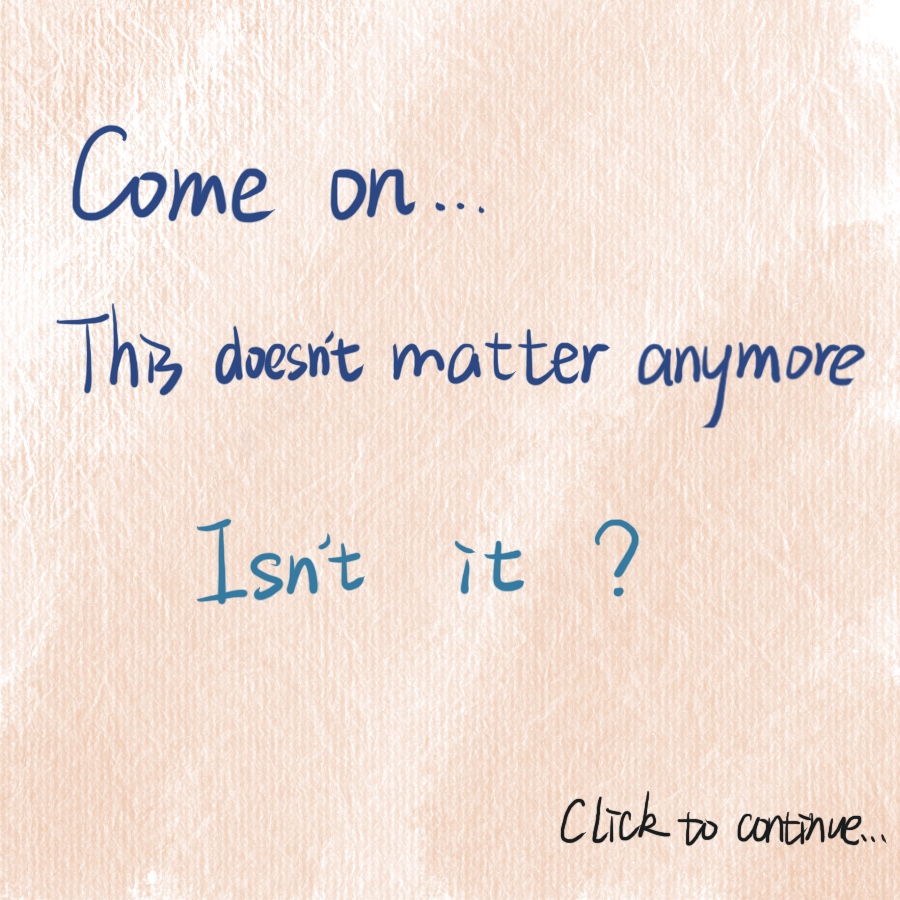 Come on...
This doesn't matter anymore
Isn't it ?
Click to continue...